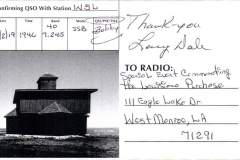 Confirming QSO With Station W5L
Band
40
1946
7.245
SSB
Thank-you
Larry Dale
TO RADIO:
Special Event Commemorating
the Louisiana Purchase
111 Eagle Lake Dr
West Monroe, LA
71291